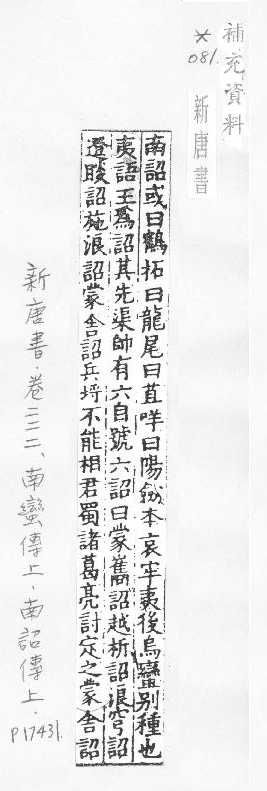 補充資料
*
081.
新唐書
南詔或曰鶴拓曰龍尾曰苴咩曰陽劍本哀牢夷後烏蠻別種也
夷語王爲詔其先渠帥有六自號六詔曰蒙巂詔越析詔浪穹詔
邆睒詔施浪詔蒙舍詔兵埒不能相君蜀諸葛亮討定之蒙舍詔
新唐書.卷二二二、南蠻傳上.南詔傳上.
P17431.